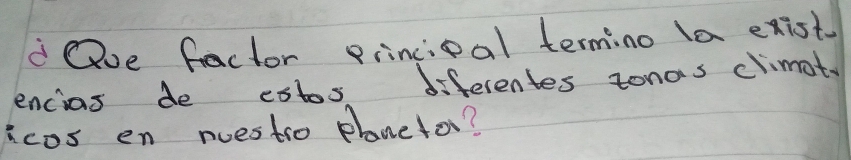 ¿Que factor principal termino la exist-
encias de estos diferentes zonas climat-
icos en nuestro planeta?